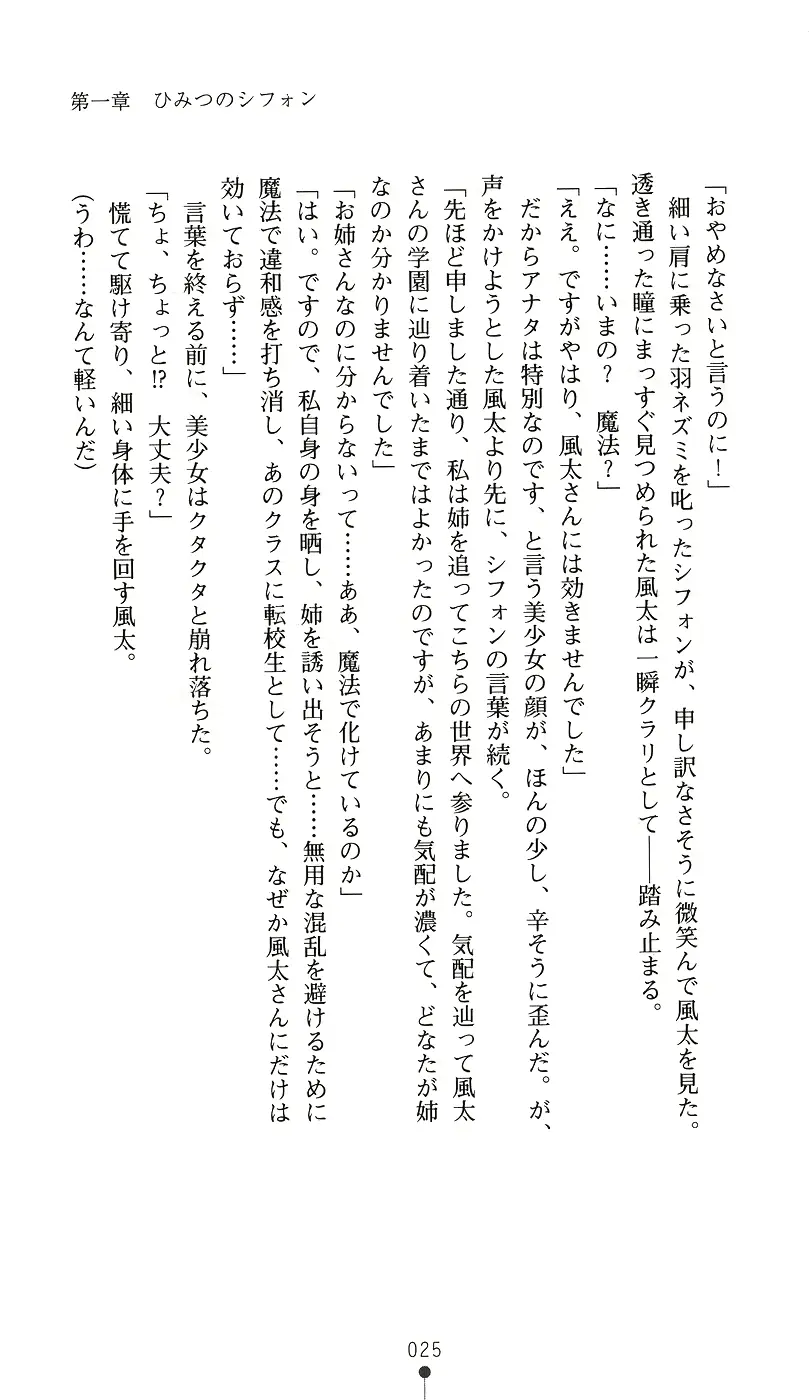 第一章　ひみつのシフォン
「おやめなさいと言うのに！」
　細い肩に乗った羽ネズミを叱ったシフォンが、申し訳なさそうに微笑んで風太を見た。
透き通った瞳にまっすぐ見つめられた風太は一瞬クラリとして――踏み止まる。
「なに……いまの？　魔法？」
「ええ。ですがやはり、風太さんには効きませんでした」
　だからアナタは特別なのです、と言う美少女の顔が、ほんの少し、辛そうに歪んだ。が、
声をかけようとした風太より先に、シフォンの言葉が続く。
「先ほど申しました通り、私は姉を追ってこちらの世界へ参りました。気配を辿って風太
さんの学園に辿り着いたまではよかったのですが、あまりにも気配が濃くて、どなたが姉
なのか分かりませんでした」
「お姉さんなのに分からないって……ああ、魔法で化けているのか」
「はい。ですので、私自身の身を晒し、姉を誘い出そうと……無用な混乱を避けるために
魔法で違和感を打ち消し、あのクラスに転校生として……でも、なぜか風太さんにだけは
効いておらず……」
　言葉を終える前に、美少女はクタクタと崩れ落ちた。
「ちょ、ちょっと!?　大丈夫？」
　慌てて駆け寄り、細い身体に手を回す風太。
（うわ……なんて軽いんだ）
025